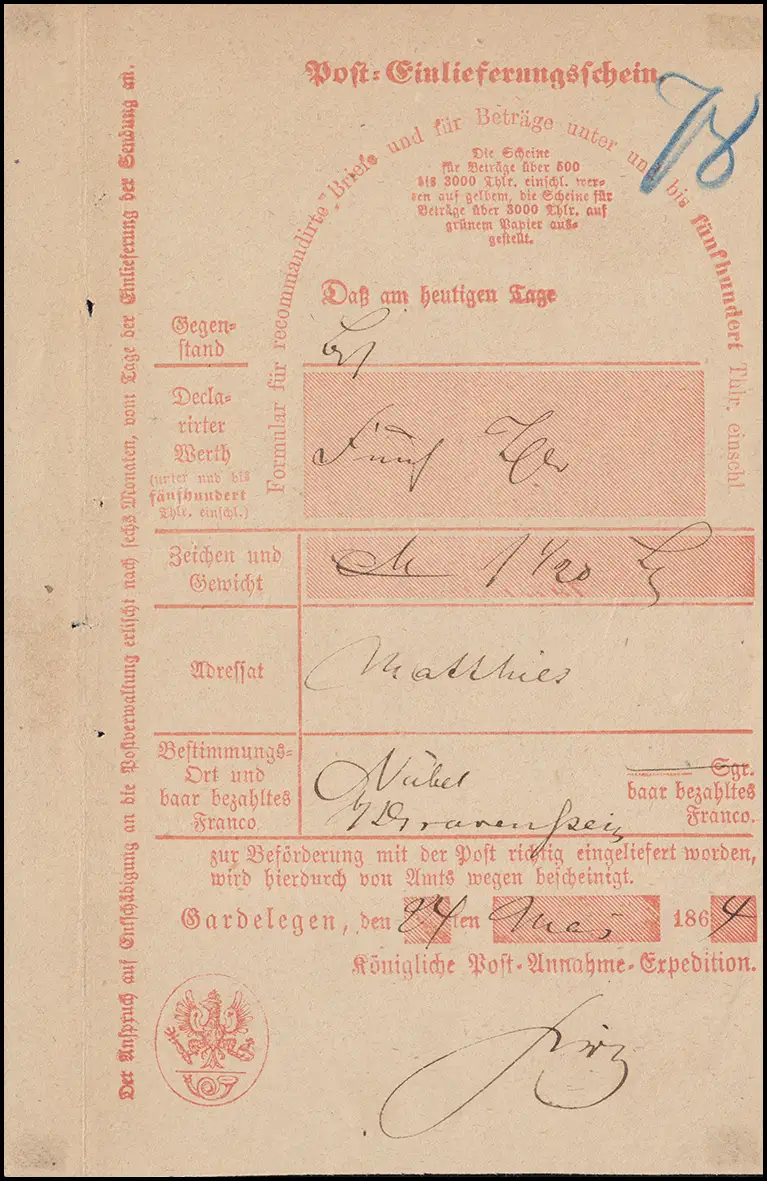 Post-Einlieferungsschein
Formular für recommandirte Briefe und für Beträge unter und bis fünfhundert Thlr. einschl.
Die Scheine
für Beträge über 500
bis 3000 Thlr. einschl. wer-
den auf gelbem, die Scheine für
Beträge über 3000 Thlr. auf
grünem Papier aus-
gestellt.
Daß am heutigen Tage
Gegen-
stand
Decla-
rirter
Werth
(unter und bis
fünfhundert
Thlr. einschl.)
Fünf
Zeichen und
Gewicht
M 1 1/20
Adressat
Matthies
Bestimmungs-
Ort und
baar bezahltes
Franco
Nübel
Sgr.
baar bezahltes
Franco.
zur Beförderung mit der Post richtig eingeliefert worden,
wird hierdurch von Amts wegen bescheinigt.
Gardelegen, den 24ten Mai 1864
Königliche Post-Annahme-Expedition.
Der Anspruch auf Entschädigung an die Postverwaltung erlischt nach sechs Monaten, vom Tage der Einlieferung der Sendung an.